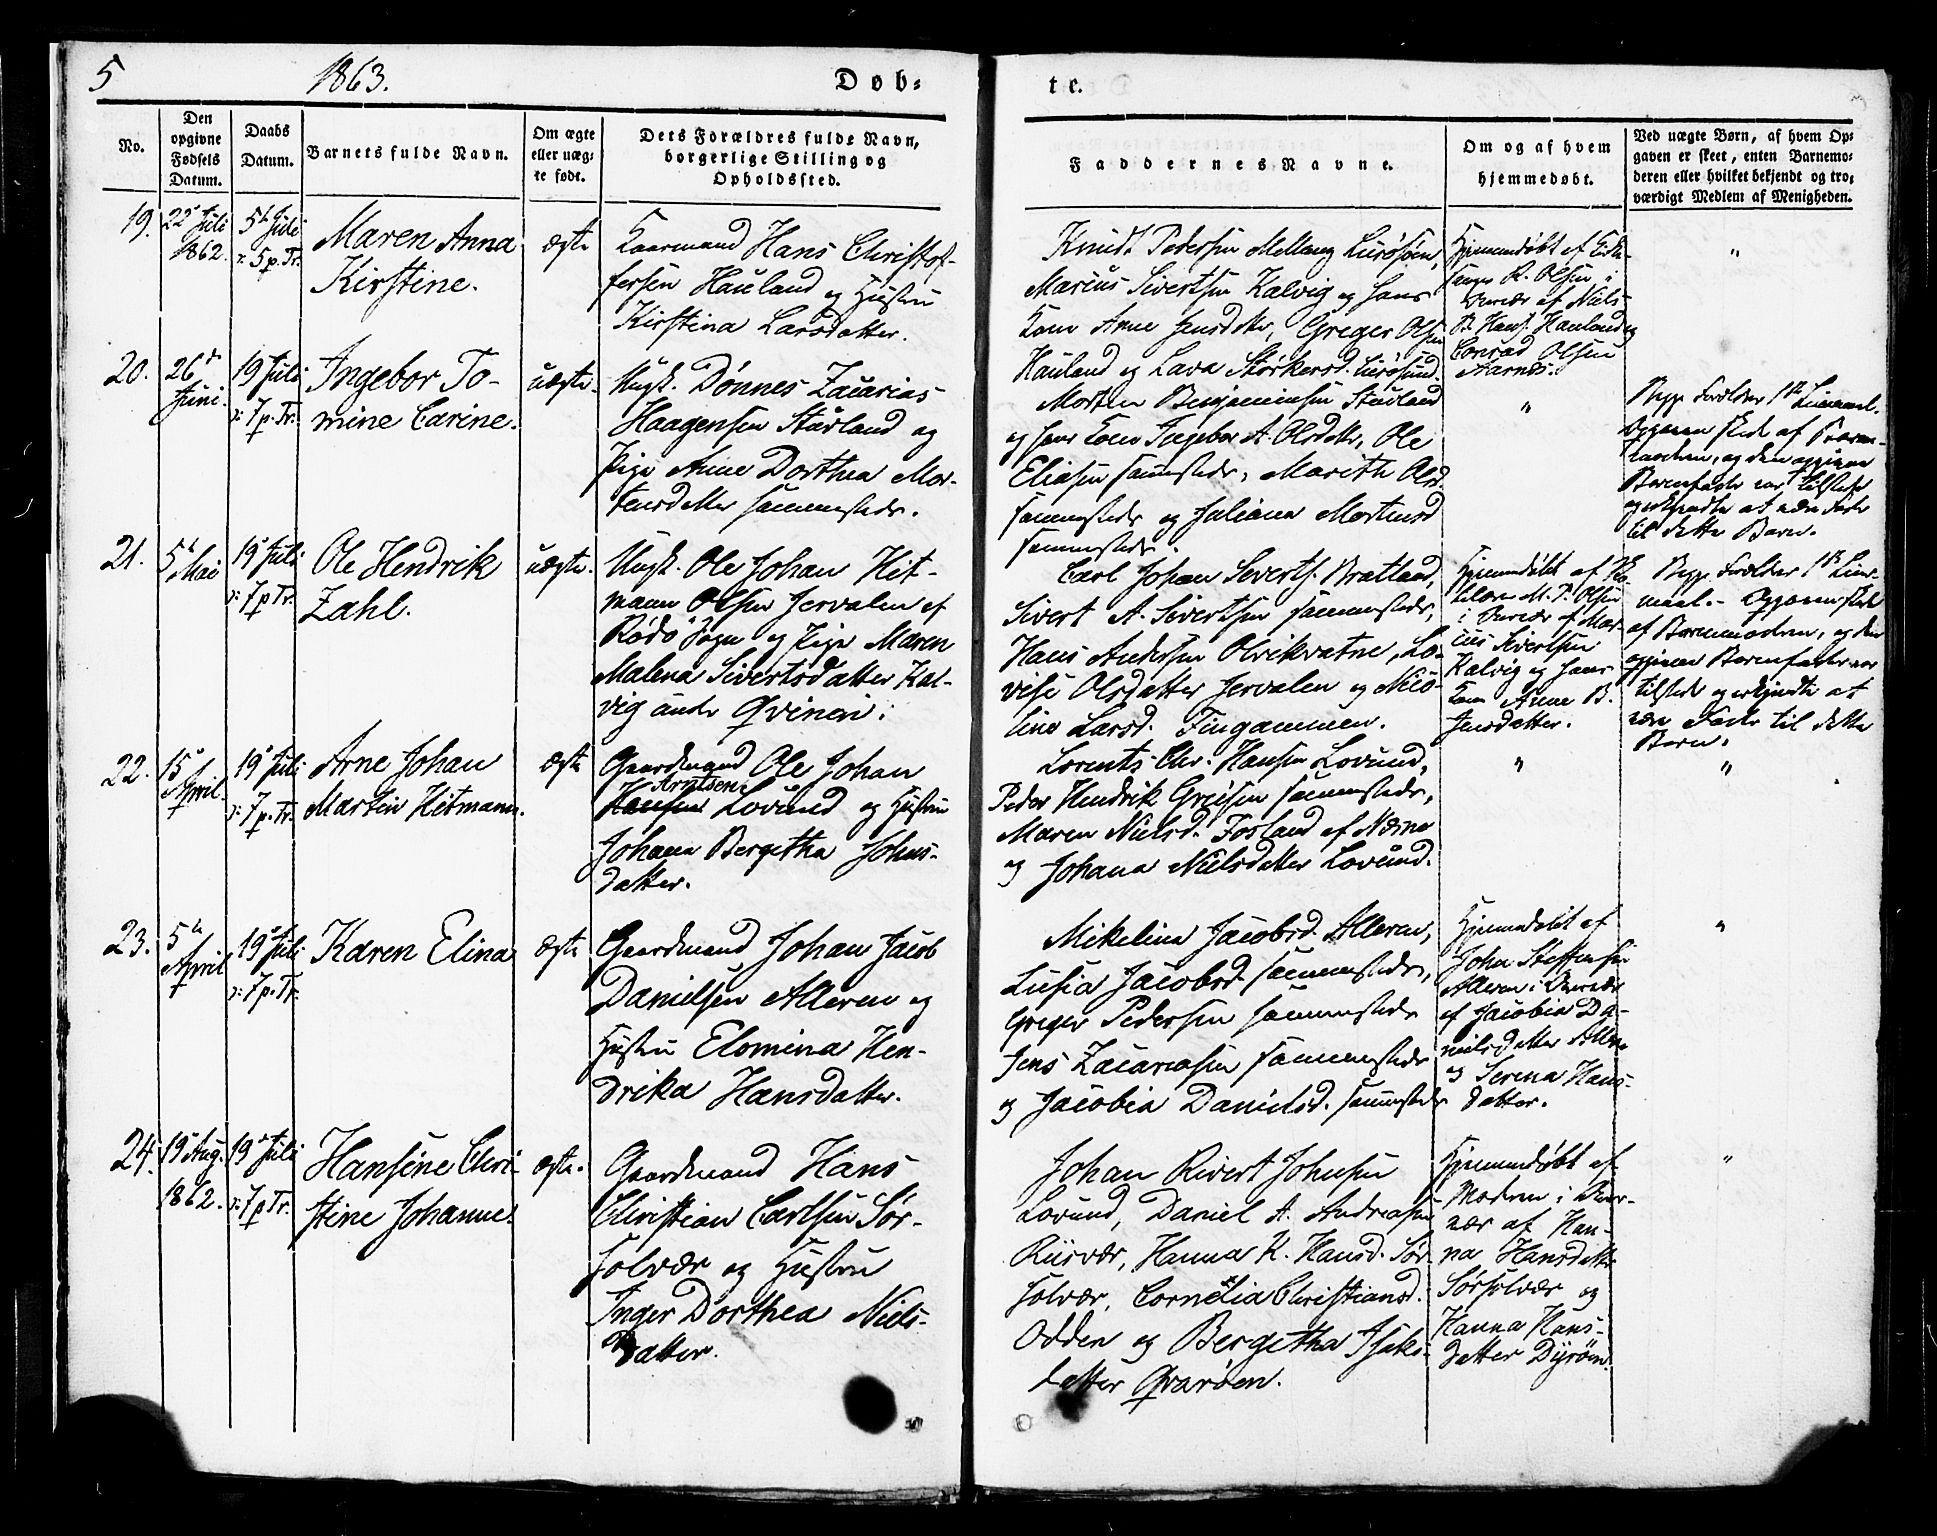 5
1863.
Døb=
te.
No.
Den
opgivne
Fødsels
Datum.
Daabs
Datum.
Barnets fulde Navn.
Om ægte
eller uæg=
te født.
Dets Forældres fulde Navn,
borgerlige Stilling og
Opholdssted.
Faddernes Navne.
Om og af hvem
hjemmedøbt.
Ved uægte Børn, af hvem Op=
gaven er skeet, enten Barnemo=
deren eller hvilket bekjendt og tro=
værdigt Medlem af Menigheden.
19.
22 Juli
1862.
5 Juli
5 p. Tr.
Maren Anna
Kirstine.
ægte
Kaarmand Hans Christof-
fersen Hauland og Hustru
Kirstina Larsdatter.
Knud Pedersen Mellang Lurøsøen,
Marius Sivertsen Kalvig og hans
Kone Anne Jensdatter, Greger Olsen
Hauland og Lava Størkersd. Lurøsund.
Hjemmedøbt af
K. Olsen i
Nærvær af Niels
P. Hans. Hauland og
Conrad Olsen
Aarnes.
"
20.
26de
Juni.
19 Juli
7 p. Tr.
Ingebor To-
mine Carine.
uægte
Ungk. Dønnes Zacarias
Haagensen Stuvland og
Pige Anne Dorthea Mor-
tensdatter sammesteds.
Morten Benjaminsen Stuvland
og hans Kone Ingebor A. Olsdatter, Ole
Eliasen sammesteds, Mareth Olsd.
sammesteds og Juliana Mortensd
sammesteds.
"
Begge Forældres 1ste Leiermaal.
Opgaven skede af Barne-
moderen, og den opgivne
Barnefader var tilstede
og erkjendte at være Fader
til dette Barn.
21.
5 Mai
19 Juli
7 p Tr.
Ole Hendrik
Zahl.
uægte.
Ungk. Ole Johan Hit-
mann Olsen Jervalen af
Rødø Sogn og Pige Maren
Malena Sivertsdatter Kal-
vig
Carl Johan Siverts. Bratland,
Sivert A. Sivertsen sammesteds,
Hans Andersen Olvikvatne, Lo-
vise Olsdatter Jervalen og Nico-
line Larsd. Fingammen.
Hjemmedøbt af
M. P. Olsen
i Nærvær af Mar-
cus Sivertsen
Kalvig og hans
Kone Anne B.
Jensdatter.
Begge Forældres 1ste Leier-
maal. - Opgaven skede
af Barnemoderen, og den
opgivne Barnefader var
tilstede og erkjendte at
være Fader til dette
Barn.
22.
15 April
19 Juli
7 p. Tr.
Arne Johan
Martin Hitmann.
ægte
Gaardmand Ole Johan
Arntsen
Hansen Lovund og Hustru
Johana Bergitha Johns-
datter.
Lorents Chr. Hansen Lovund,
Peder Hendrik Greisen sammesteds,
Maren Nielsd. Fosland af Næsne
og Johana Nielsdatter Lovund.
"
"
23.
5te
April
19 Juli
7 p. Tr.
Karen Elina
ægte
Gaardmand Johan Jacob
Danielsen Alleren og
Hustru Elomina Hen-
drika Hansdatter.
Mikelina Jacobsd. Alleren,
Lusia Jacobsd. sammesteds,
Greger Pedersen sammesteds
Jens Zacariasen sammesteds
og Jacobia Danielsd. sammesteds
Hjemmedøbt af
John Steffensen
Alleren i Nærvær
af Jacobia Da-
nielsdatter Alleren
og Serena Hans-
datter.
"
24.
19 Aug.
1862.
19 Juli
7 p Tr.
Hansine Chri-
stine Johanne.
ægte.
Gaardmand Hans
Christian Carlsen Sør-
solvær og Hustru
Inger Dorthea Niels-
datter.
Johan Rivert Johnsen
Lovund, Daniel A. Andreasen
Riisvær, Hanna K. Hansd. Sør-
solvær, Cornelia Christiansd.
Odden og Bergitha Isaks-
datter Qvarøen.
Hjemmedøbt af
Moderen i Nær-
vær af Han-
na Hansdatter
Sørsolvær og
Hanna Hans-
datter Dyrøen.
"